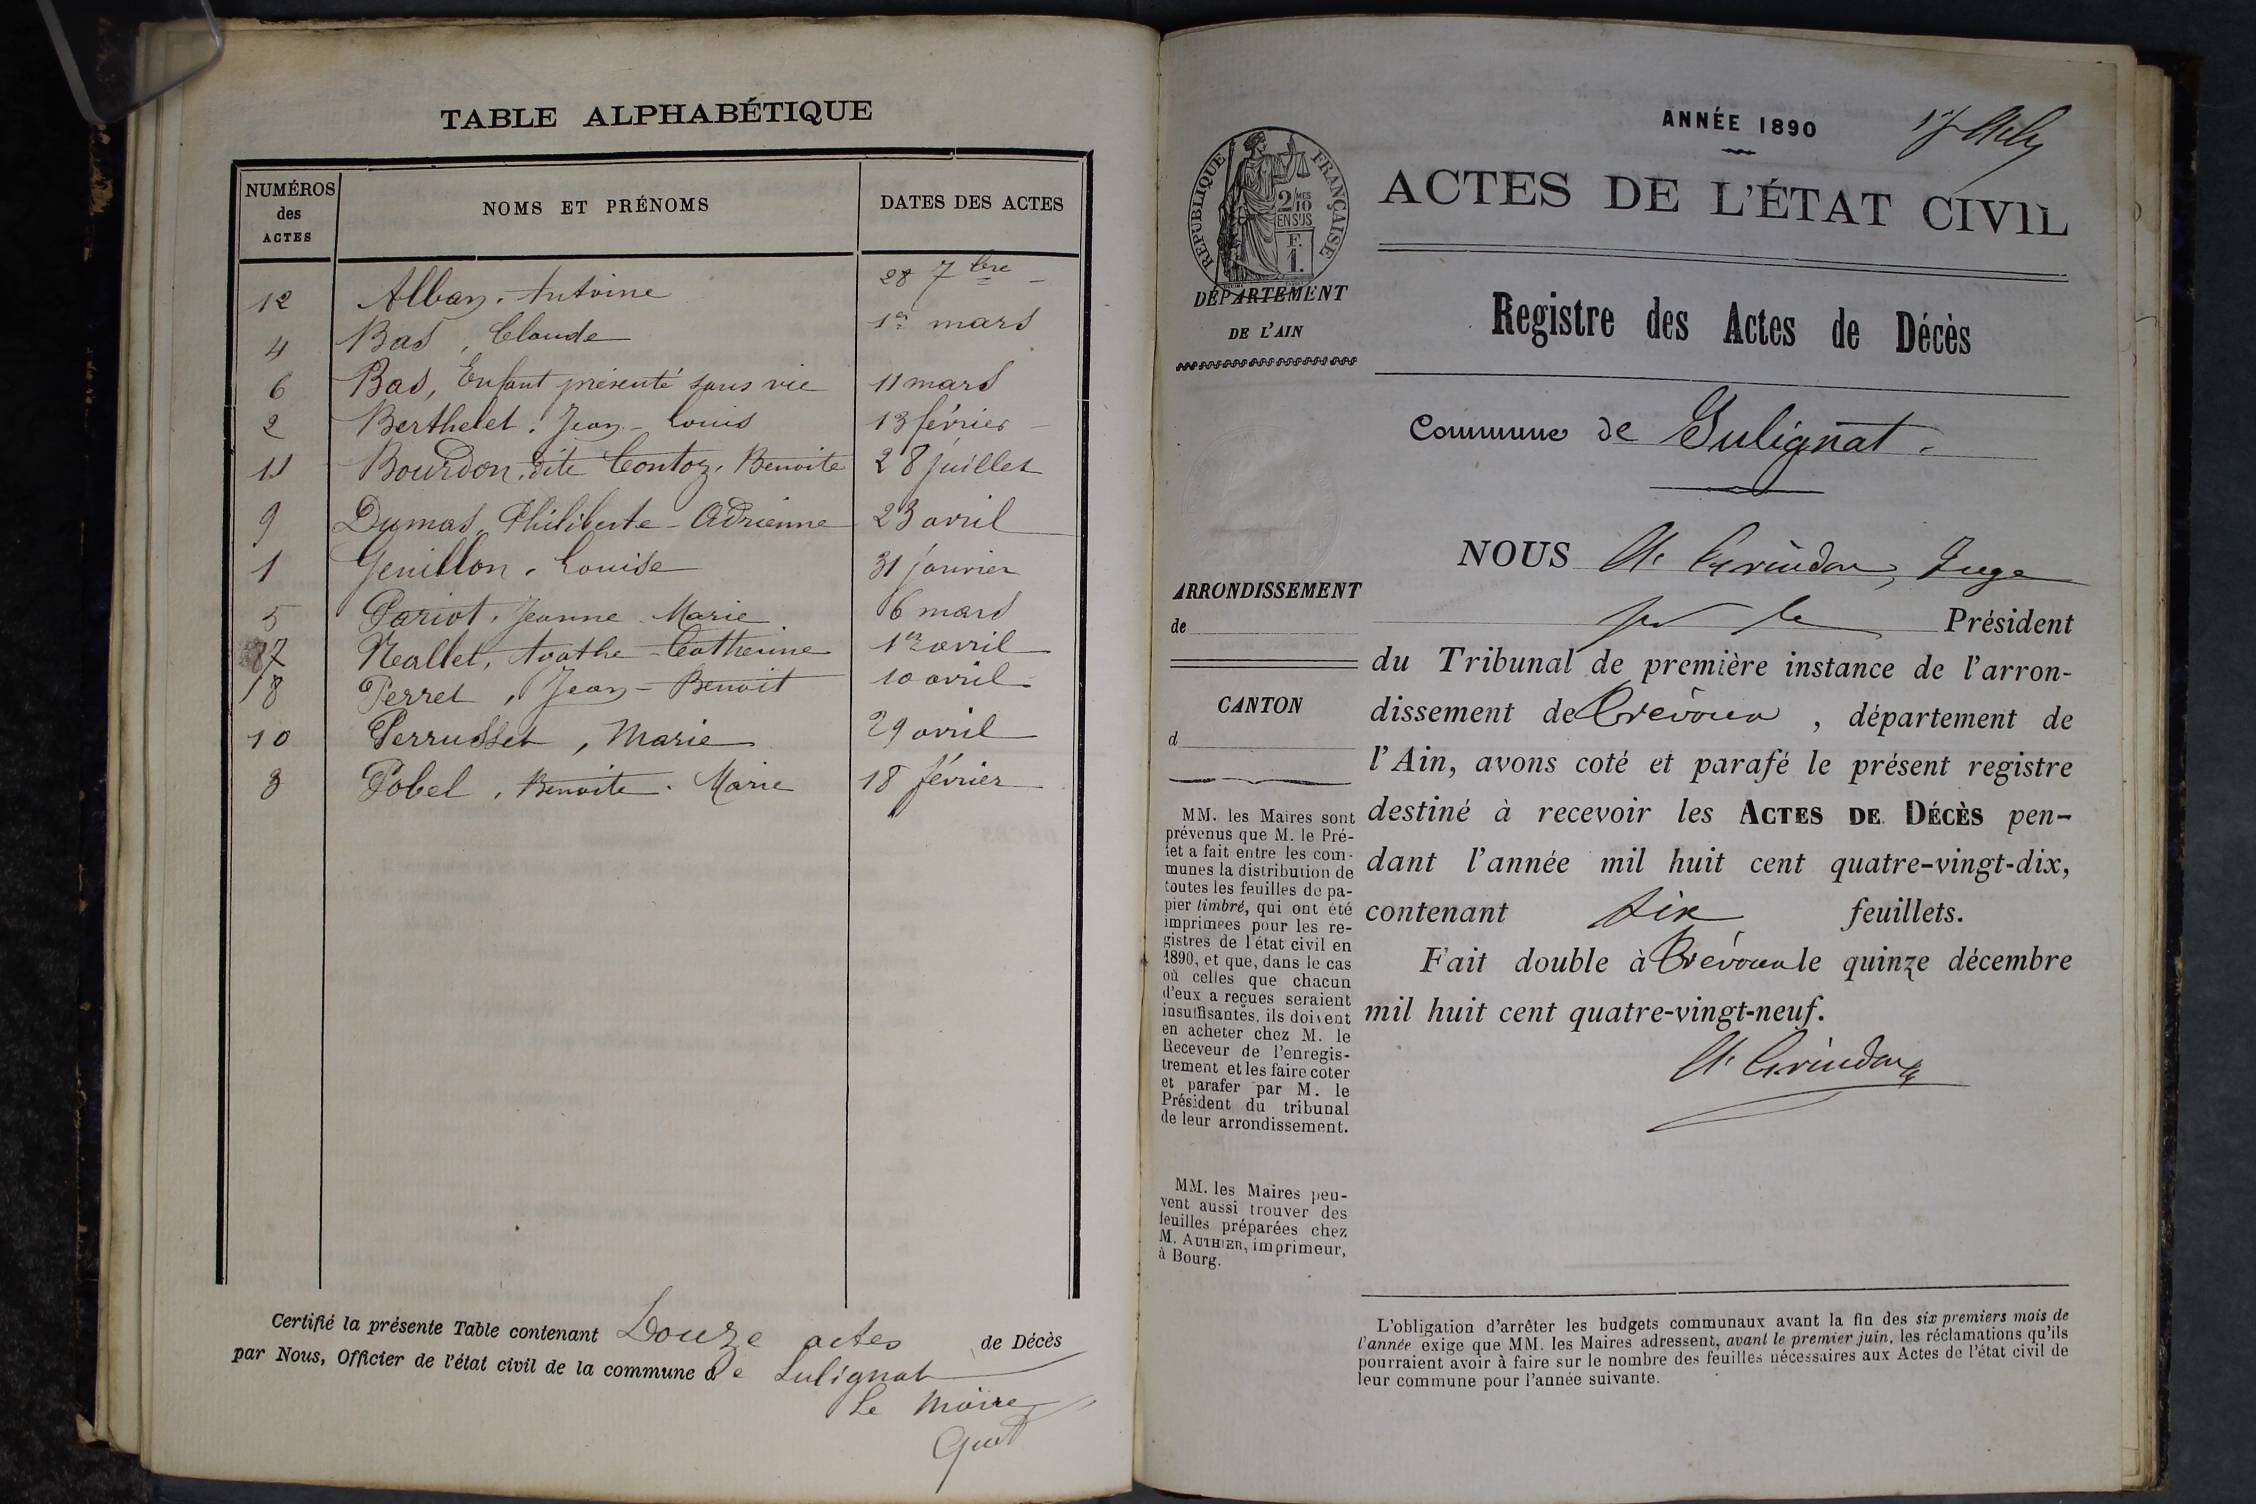 TABLE ALPHABÉTIQUE
NUMÉROS des ACTES
NOMS ET PRÉNOMS
DATES DES ACTES
12 Alban, Antoine 28 7bre
4 Bas, Claude 1er mars
6 Bas, Enfant présenté sans vie 11 mars
2 Berthelet, Jean-Louis 13 février
11 Bourdon, dite Contoz, Benoite 28 juillet
9 Dumas, Philiberte-Adrienne 23 avril
1 Genillon, Louise 31 janvier
5 Pariot, Jeanne Marie 6 mars
7 Nallet, Agathe-Catherine 1er avril
8 Perret, Jean-Benoit 10 avril
10 Perrusset, Marie 29 avril
3 Pobel, Benoite-Marie 18 février
Certifié la présente Table contenant Douze actes de Décès
par Nous, Officier de l'état civil de la commune de Sulignat
Le Maire
ANNÉE 1890
ACTES DE L'ÉTAT CIVIL
RÉPUBLIQUE FRANÇAISE
2/10MES
EN SUS
F.
1.
DÉPARTEMENT
DE L'AIN
Registre des Actes de Décès
Commune de Sulignat.
ARRONDISSEMENT
de
CANTON
d
MM. les Maires sont
prévenus que M. le Pré-
fet a fait entre les com-
munes la distribution de
toutes les feuilles de pa-
pier timbré, qui ont été
imprimées pour les re-
gistres de l'état civil en
1890, et que, dans le cas
où celles que chacun
d'eux a reçues seraient
insuffisantes, ils doivent
en acheter chez M. le
Receveur de l'enregis-
trement et les faire coter
et parafer par M. le
Président du tribunal
de leur arrondissement.
MM. les Maires peu-
vent aussi trouver des
feuilles préparées chez
M. AUTHIER, imprimeur,
à Bourg.
NOUS Grindon, Juge
pr le Président
du Tribunal de première instance de l'arron-
dissement de Trévoux, département de
l'Ain, avons coté et parafé le présent registre
destiné à recevoir les ACTES DE DÉCÈS pen-
dant l'année mil huit cent quatre-vingt-dix,
contenant six feuillets.
Fait double à Trévoux le quinze décembre
mil huit cent quatre-vingt-neuf.
Grindon
L'obligation d'arrêter les budgets communaux avant la fin des six premiers mois de
l'année exige que MM. les Maires adressent, avant le premier juin, les réclamations qu'ils
pourraient avoir à faire sur le nombre des feuilles nécessaires aux Actes de l'état civil de
leur commune pour l'année suivante.